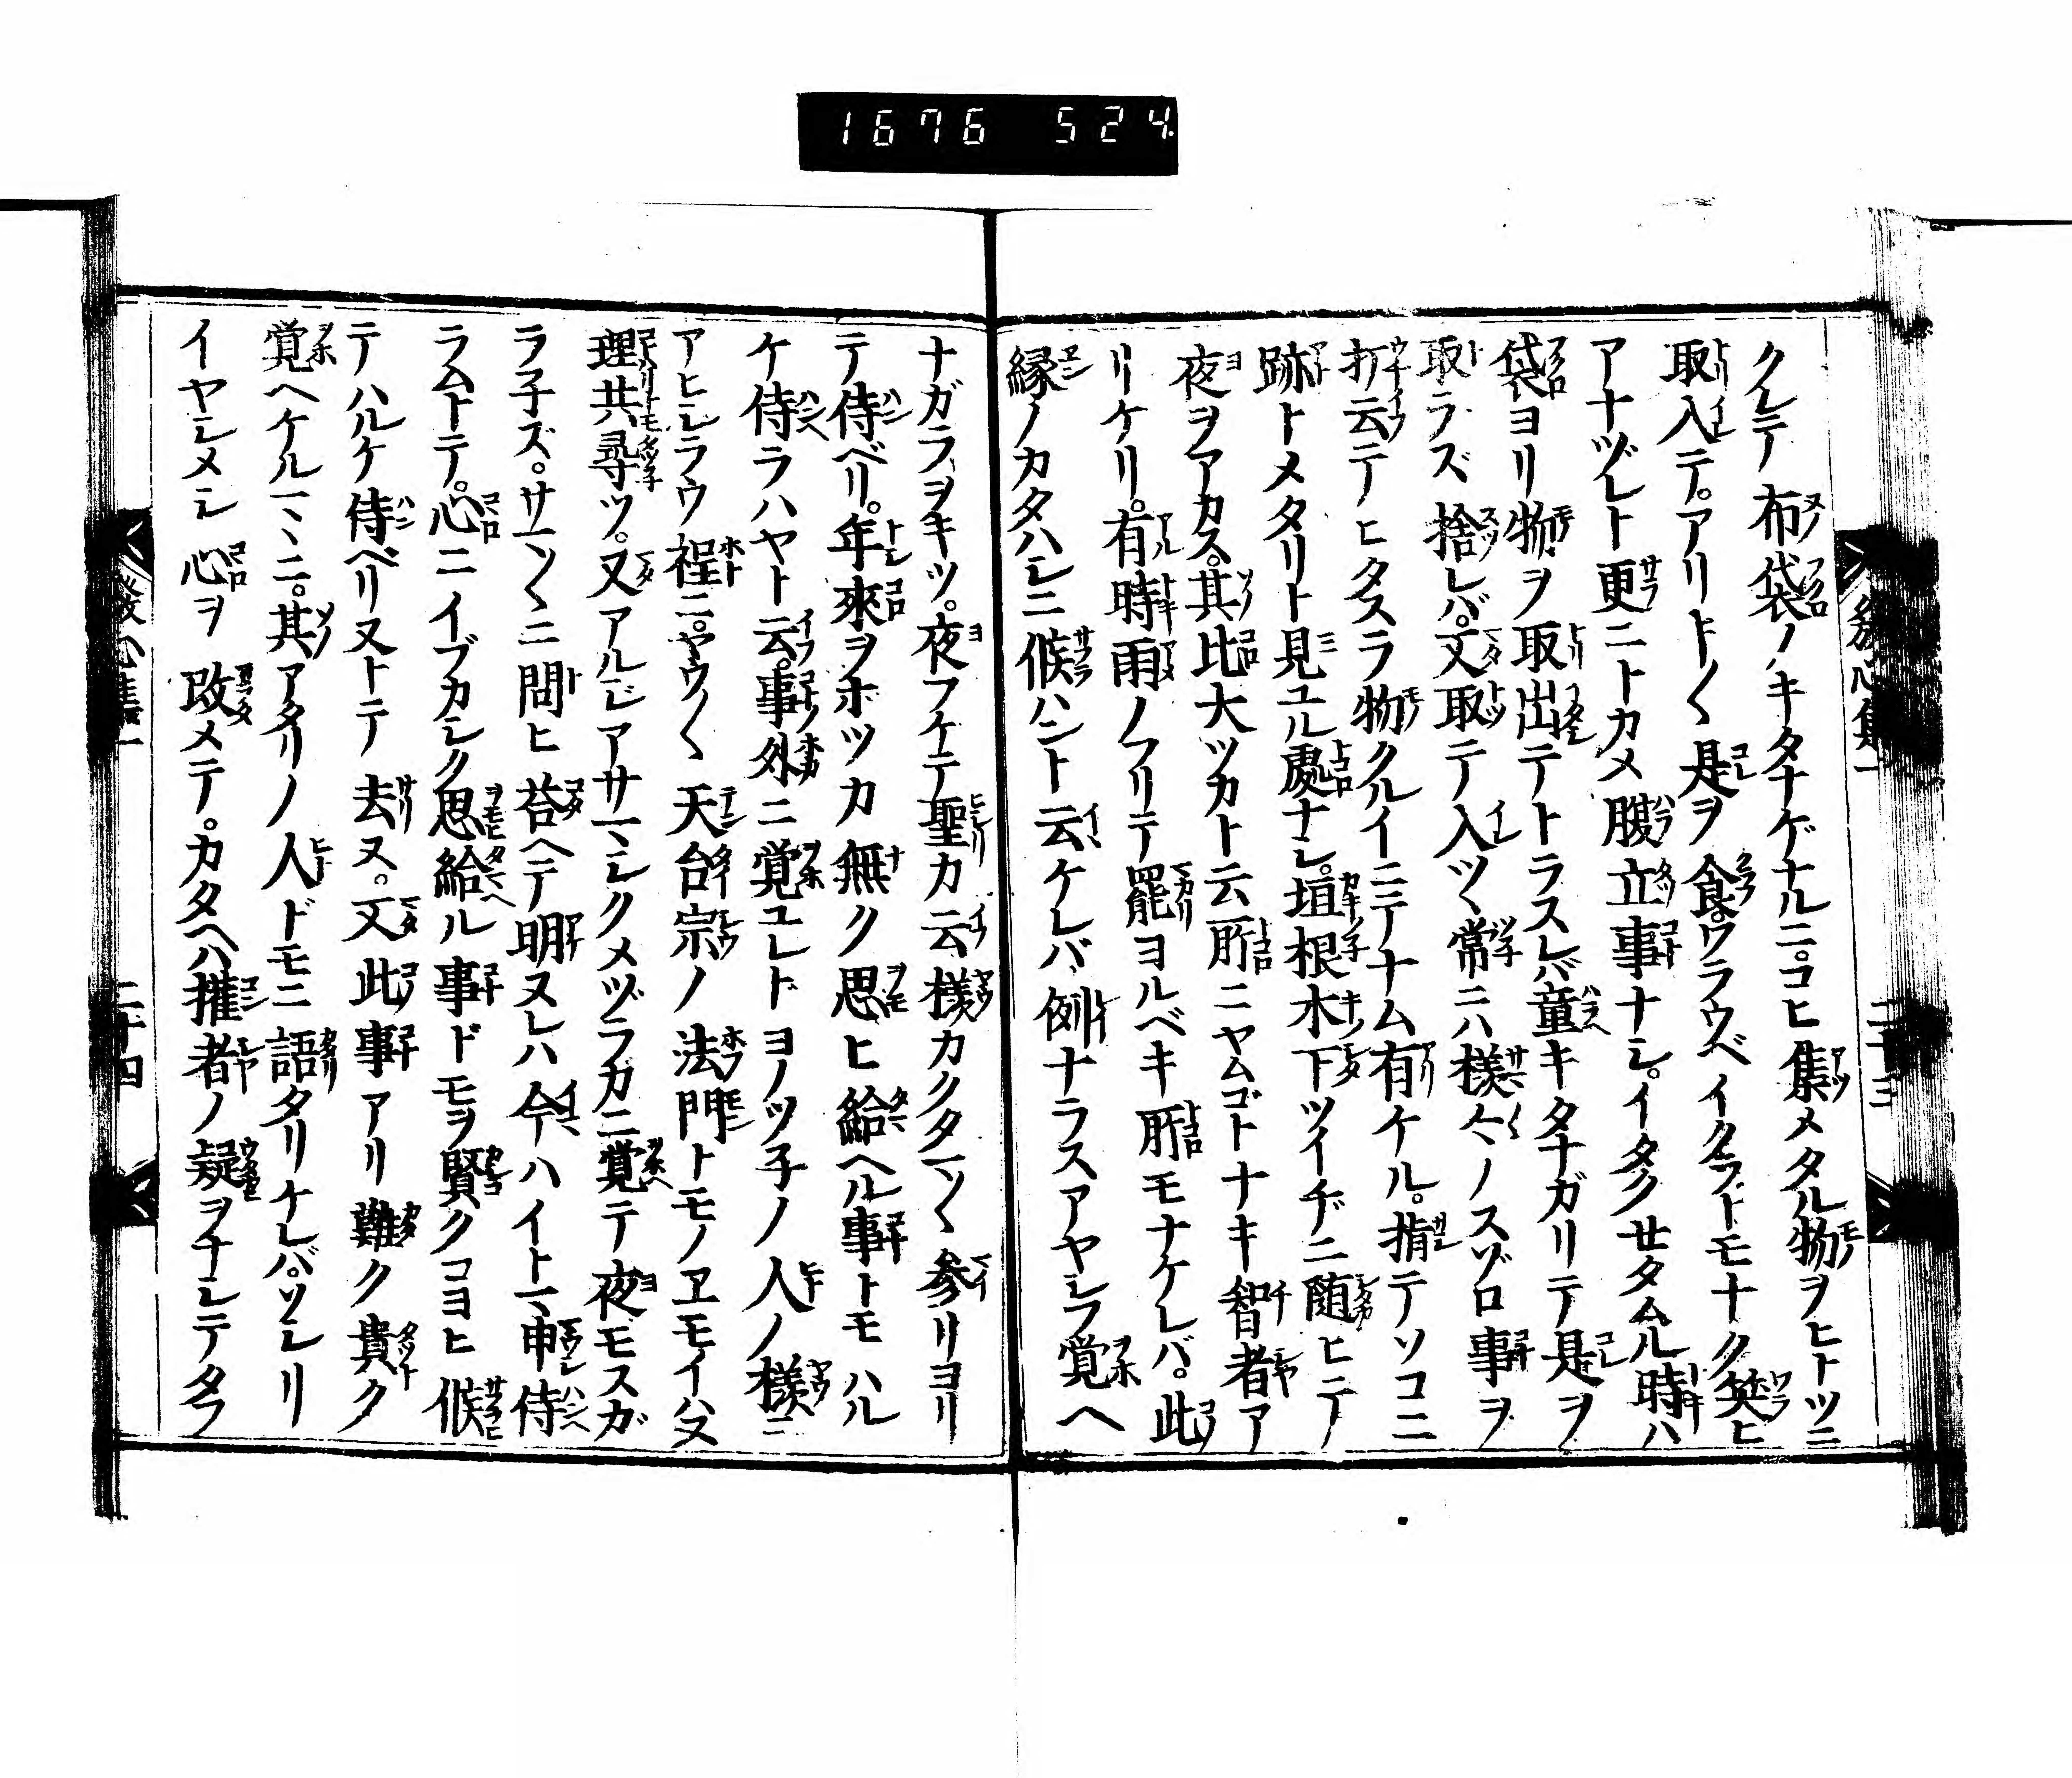 1676 524
クレテ布袋ノキタナゲナルニ。コヒ集メタル物ヲヒトツニ
取入テ。アリト〱是ヲ食。ワラウベイクラトモナク笑ヒ
アナヅレト更ニトカメ腹立事ナシ。イタクセタムル時ハ
袋ヨリ物ヲ取出テトラスレバ童キタナガリテ是ヲ
取ラズ捨レバ。又取テ入ツ〱常ニハ様々ノスゾロ事ヲ
打云テヒタスラ物クルイニテナム有ケル。指テソコニ
跡トメタリト見ユル處ナシ。垣根木下ツイヂニ随ヒテ
夜ヲアカス。其比大ツカト云所ニヤムゴトナキ智者ア
リケリ。有時雨ノフリテ罷ヨルベキ所モナケレバ。此
縁ノカタハシニ候ハント云ケレバ例ナラスアヤシフ覚ヘ
ナガラヲキツ。夜フケテ聖カ云様カクタマ〱参リヨリ
テ侍ベリ。年來ヲホツカ無ク思ヒ給ヘル事トモハル
ケ侍ラハヤト云。事外ニ覚ユレトヨノツ子ノ人ノ様ニ
アヒシラウ程ニ。ヤウ〱天台宗ノ法門トモノヱモイハヌ
理共尋ツ。又アルジアサマシクメヅラカニ覚テ夜モスガ
ラ子ズ。サマ〱ニ問ヒ荅ヘテ明ヌレハ今ハイトマ申侍
ラムトテ。心ニイブカシク思給ル事ドモヲ賢クコヨヒ候
テハルケ侍ベリヌトテ去ヌ。又此事アリ難ク貴ク
覚ヘケルマヽニ。其アタリノ人ドモニ語タリケレバ。ソシリ
イヤシメシ心ヲ改メテ。カタヘハ權者ノ疑ヲナシテタフ
發心集一
二十四